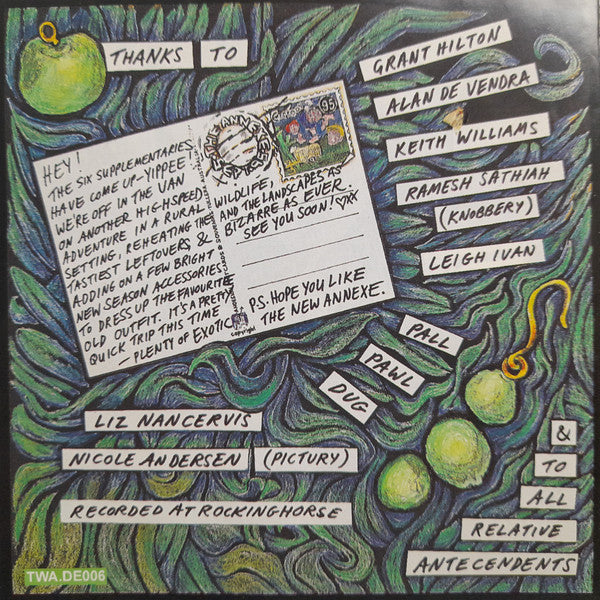 THANKS TO
GRANT HILTON
ALAN DE VENDRA
KEITH WILLIAMS
RAMESH SATHIAH
(KNOBBERY)
LEIGH IVAN
HEY!
THE SIX SUPPLEMENTARIES
HAVE COME UP-YIPPEE
WE'RE OFF IN THE VAN
ON ANOTHER HIGH-SPEED
ADVENTURE IN A RURAL
SETTING, REHEATING THE
TASTIEST LEFTOVERS &
ADDING ON A FEW BRIGHT
NEW SEASON ACCESSORIES
TO DRESS UP THE FAVOURITE
OLD OUTFIT. IT'S A PRETTY
QUICK TRIP THIS TIME
- PLENTY OF EXOTIC
WILDLIFE,
AND THE LANDSCAPES AS
BIZARRE AS EVER.
SEE YOU SOON!
P.S. HOPE YOU LIKE
THE NEW ANNEXE.
copyright
95
PALL
PAWL
DUG
LIZ NANCERVIS
NICOLE ANDERSEN (PICTURY)
RECORDED AT ROCKINGHORSE
&
TO
ALL
RELATIVE
ANTECENDENTS
TWA.DE006